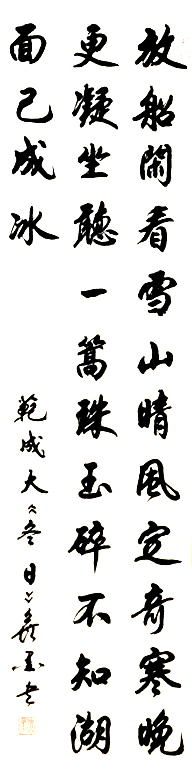 放船閑看雪山晴風定奇寒晚
更凝坐聽一篙珠玉碎不知湖
面已成冰
範成大《冬日》